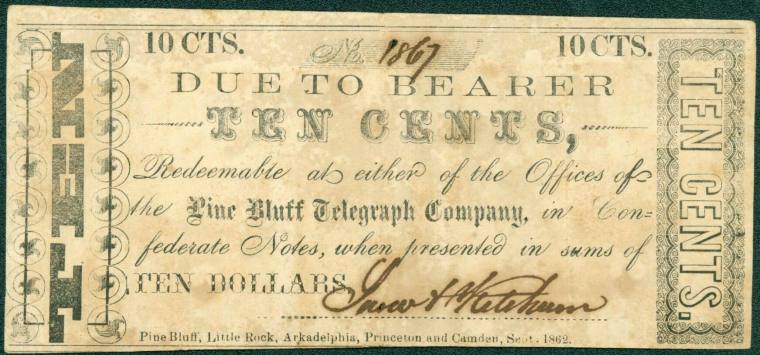 TEN
10 CTS. No. 1867 10 CTS.
DUE TO BEARER
TEN CENTS,
Redeemable at either of the Offices of
the Pine Bluff Telegraph Company, in Con=
federate Notes, when presented in sums of
TEN DOLLARS.
Ketchum
Pine Bluff, Little Rock, Arkadelphia, Princeton and Camden, Sept. 1862.
TEN CENTS.